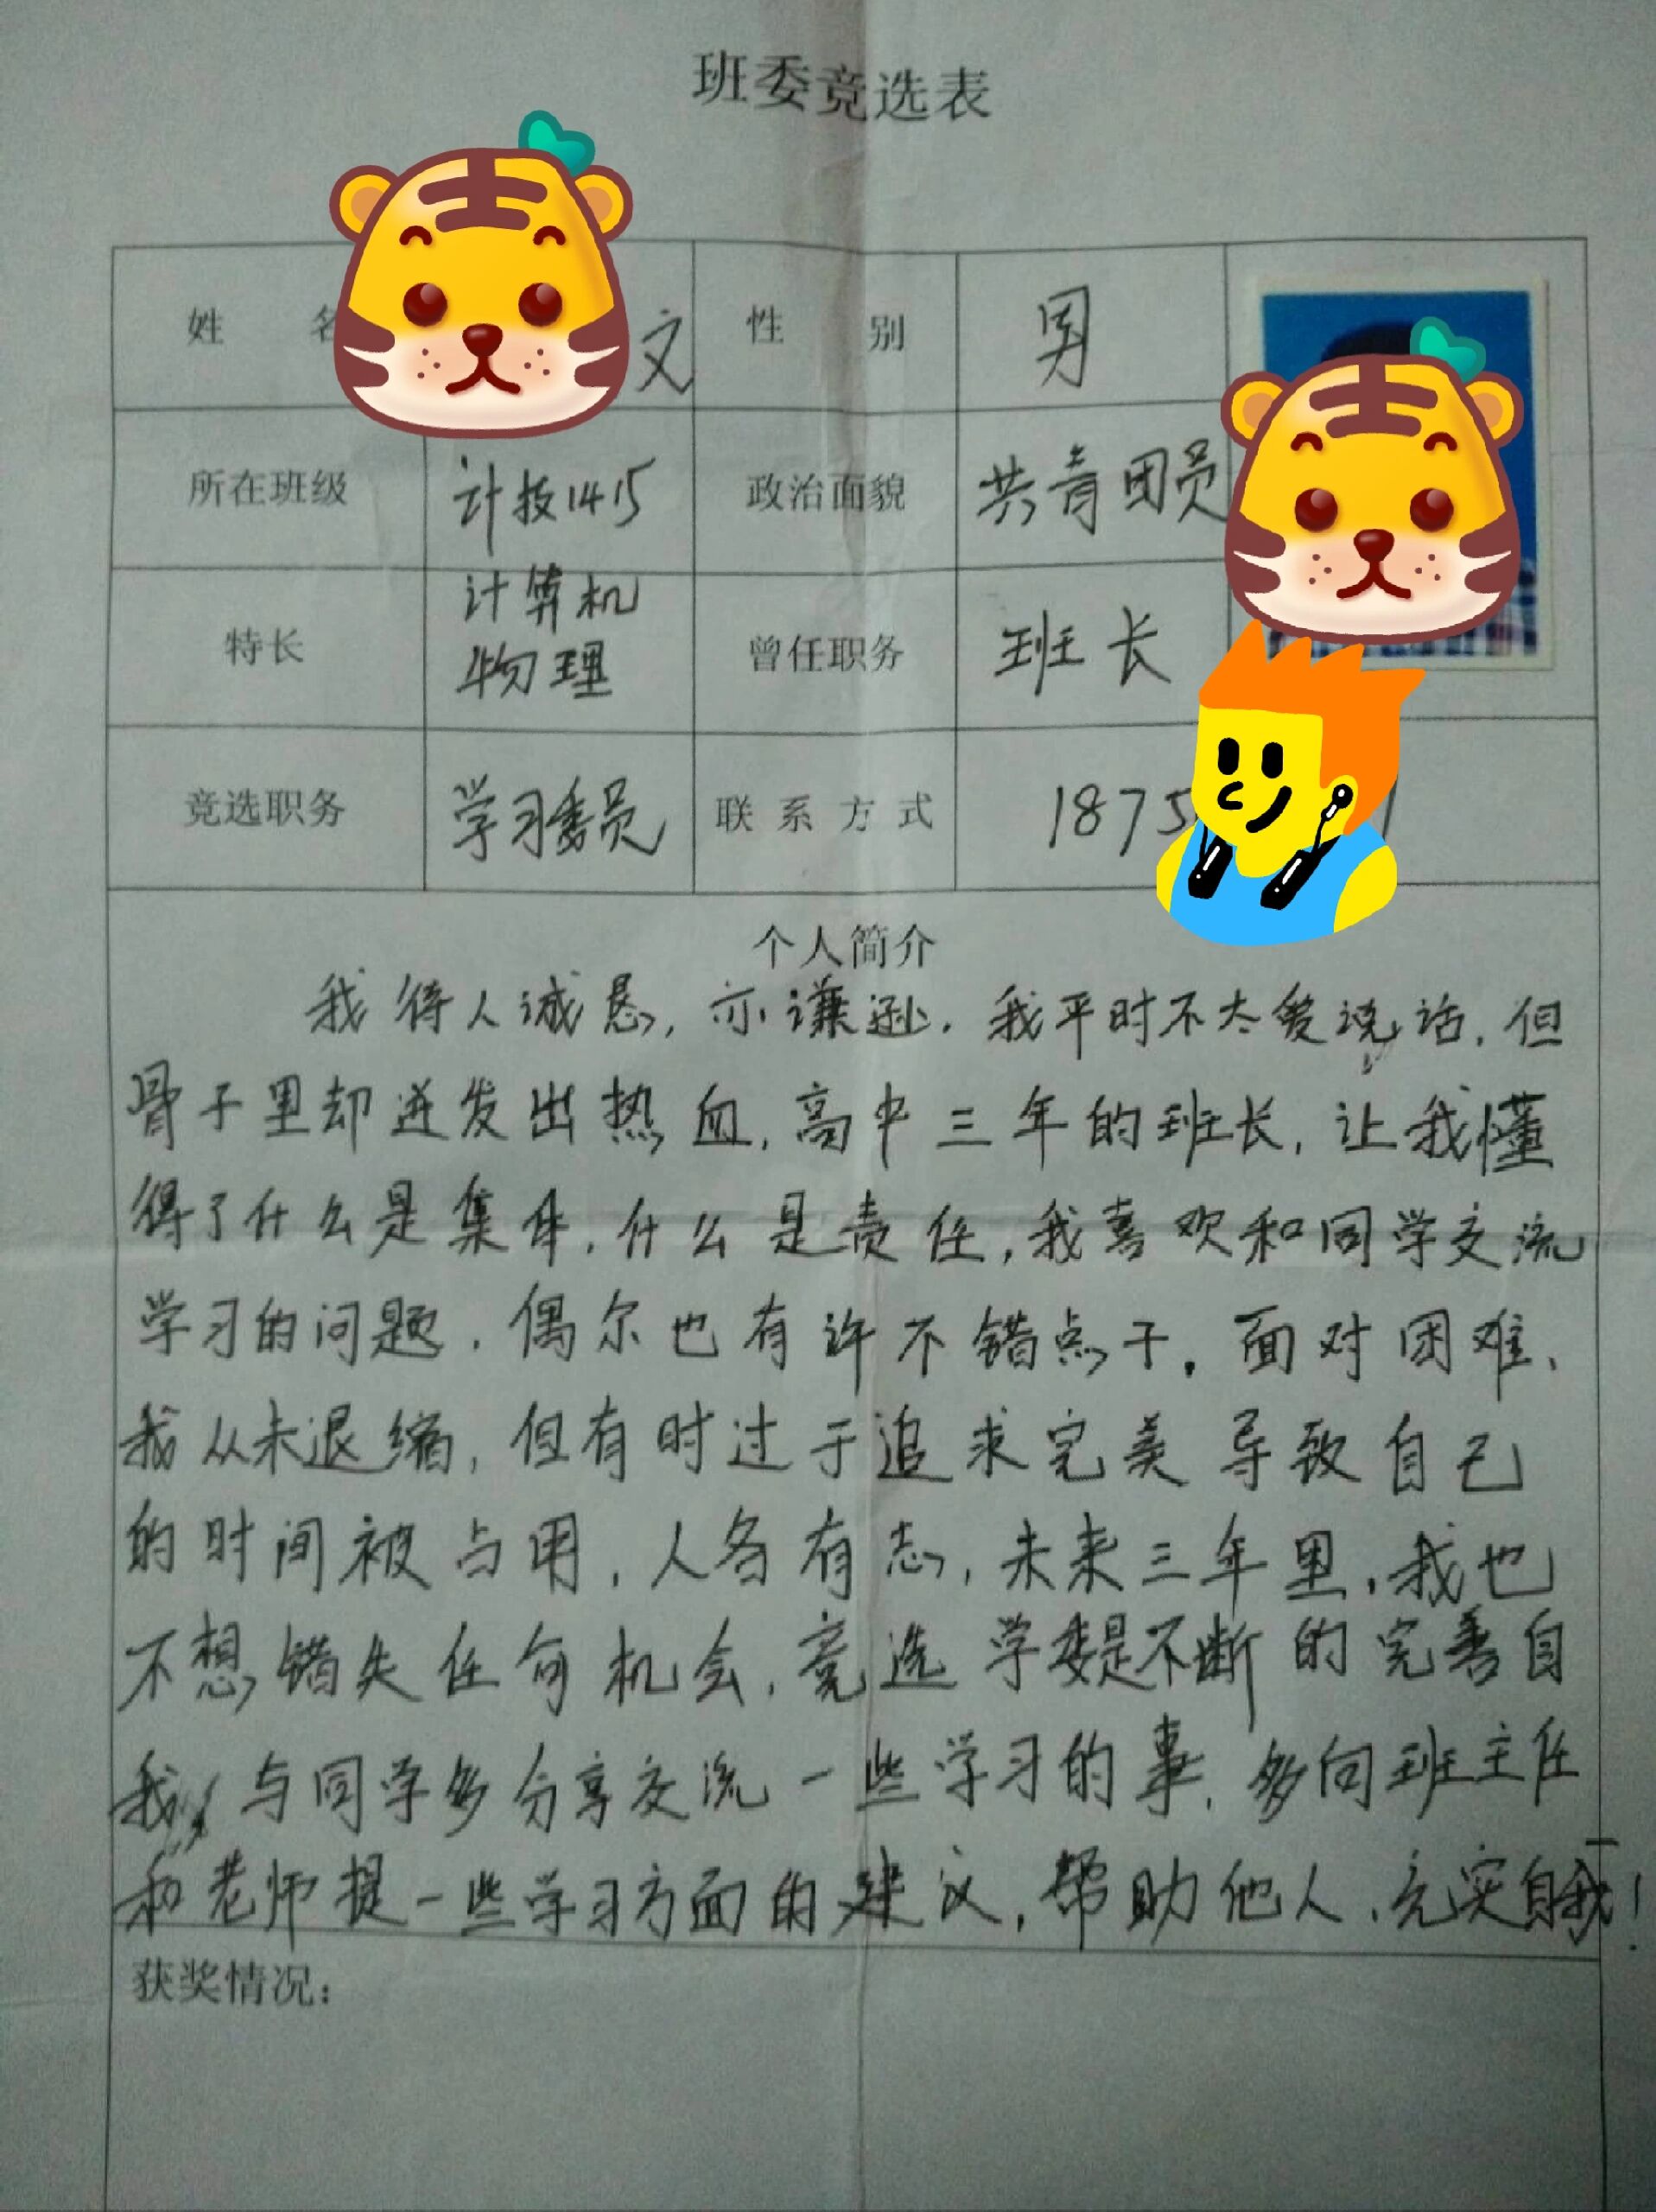 班委竞选表
姓 名 文 性 别 男
所在班级 计技1415 政治面貌 共青团员
特长 计算机 物理 曾任职务 班长
竞选职务 学习委员 联系方式 1875 1
个人简介
我待人诚恳,亦谦逊.我平时不太爱说话,但
骨子里却迸发出热血,高中三年的班长,让我懂
得了什么是集体,什么是责任,我喜欢和同学交流
学习的问题.偶尔也有许不错点子。面对困难、
我从未退缩,但有时过于追求完美导致自己
的时间被占用,人各有志,未来三年里,我也
不想错失任何机会,竞选学委是不断的完善自
我,与同学多分享交流一些学习的事,多向班主任
和老师提一些学习方面的建议,帮助他人、充实自我!
获奖情况: